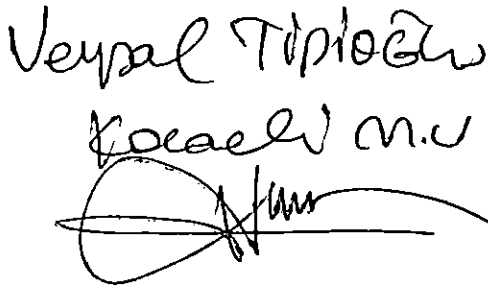 Veysal Tipioğlu
Kocaeli M.V